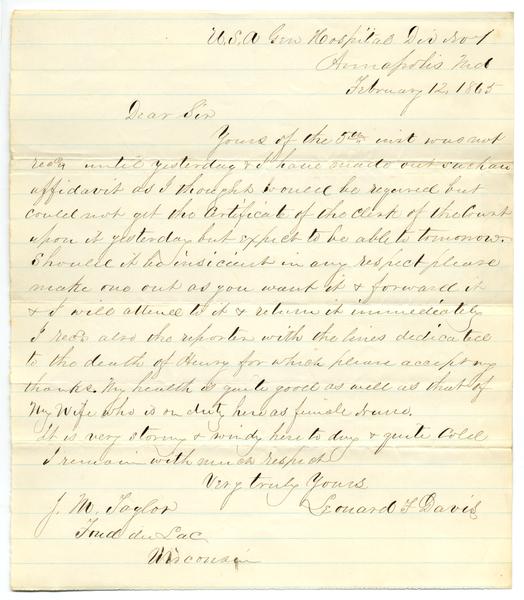 U.S.A Gen Hospital Div No 1
Annapolis Md
February 12, 1865
Dear Sir
Yours of the 5th inst was not
recd until yesterday & I have made out such an
affidavit as I thought would be required but
could not get the Certificate of the Clerk of the Court
upon it yesterday but expect to be able to tomorrow.
Should it be in any respect please
make one out as you want it & forward it
& I will attend to it & return it immediately
I recd also the reporter with the lines dedicated
to the death of Henry for which please accept my
thanks. My health is quite good as well as that of
My Wife who is on duty here as female nurse.
It is very stormy & windy here to day & quite Cold
I remain with much respect
Very truly Yours
Leonard F Davis
J. M. Taylor
Fond du Lac
Wisconsin